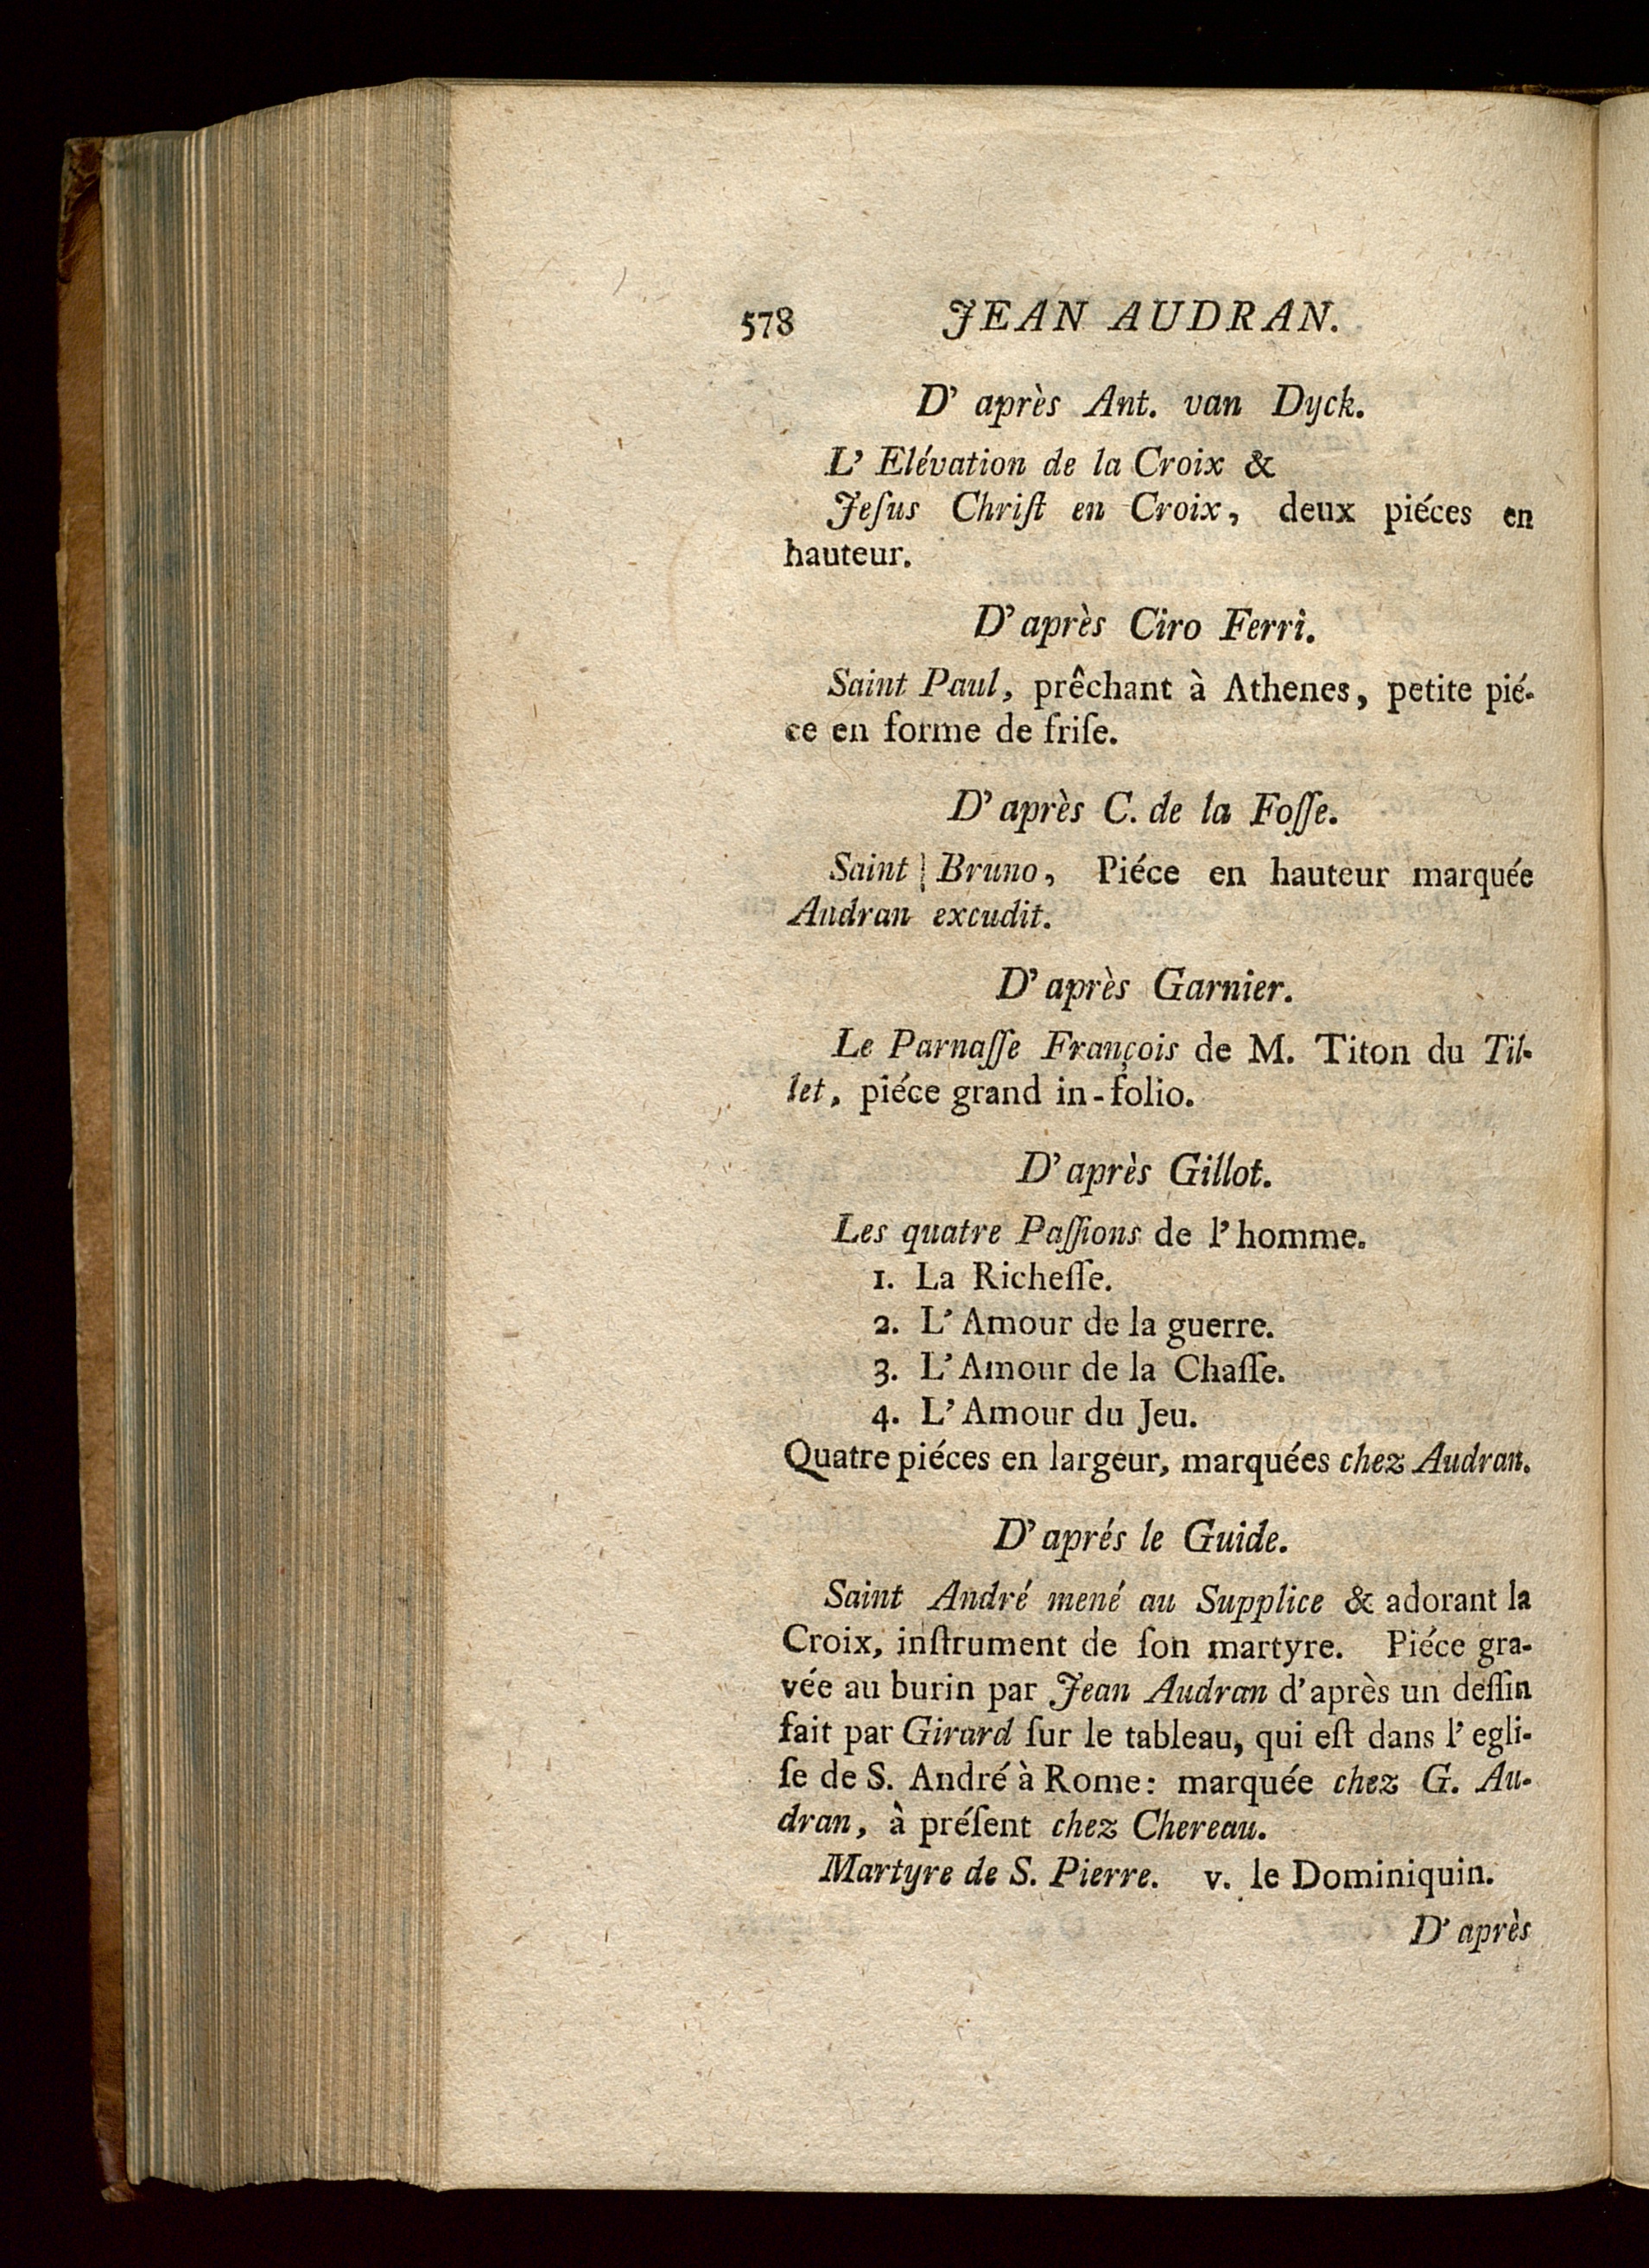 578 JEAN AUDRAN.
D' après Ant. van Dyck.
L' Elévation de la Croix &
Jeſus Chriſt en Croix, deux piéces en
hauteur.
D' après Ciro Ferri.
Saint Paul, prêchant à Athenes, petite pié-
ce en forme de friſe.
D' après C. de la Foſſe.
Saint Bruno, Piéce en hauteur marquée
Audran excudit.
D' après Garnier.
Le Parnaſſe François de M. Titon du Til-
let, piéce grand in-folio.
D' après Gillot.
Les quatre Paſſions de l' homme.
1. La Richeſſe.
2. L' Amour de la guerre.
3. L' Amour de la Chaſſe.
4. L' Amour du Jeu.
Quatre piéces en largeur, marquées chez Audran.
D' aprés le Guide.
Saint André mené au Supplice & adorant la
Croix, inſtrument de ſon martyre. Piéce gra-
vée au burin par Jean Audran d' après un deſſin
fait par Girard ſur le tableau, qui eſt dans l' egli-
ſe de S. André à Rome: marquée chez G. Au-
dran, à préſent chez Chereau.
Martyre de S. Pierre. v. le Dominiquin.
D' après